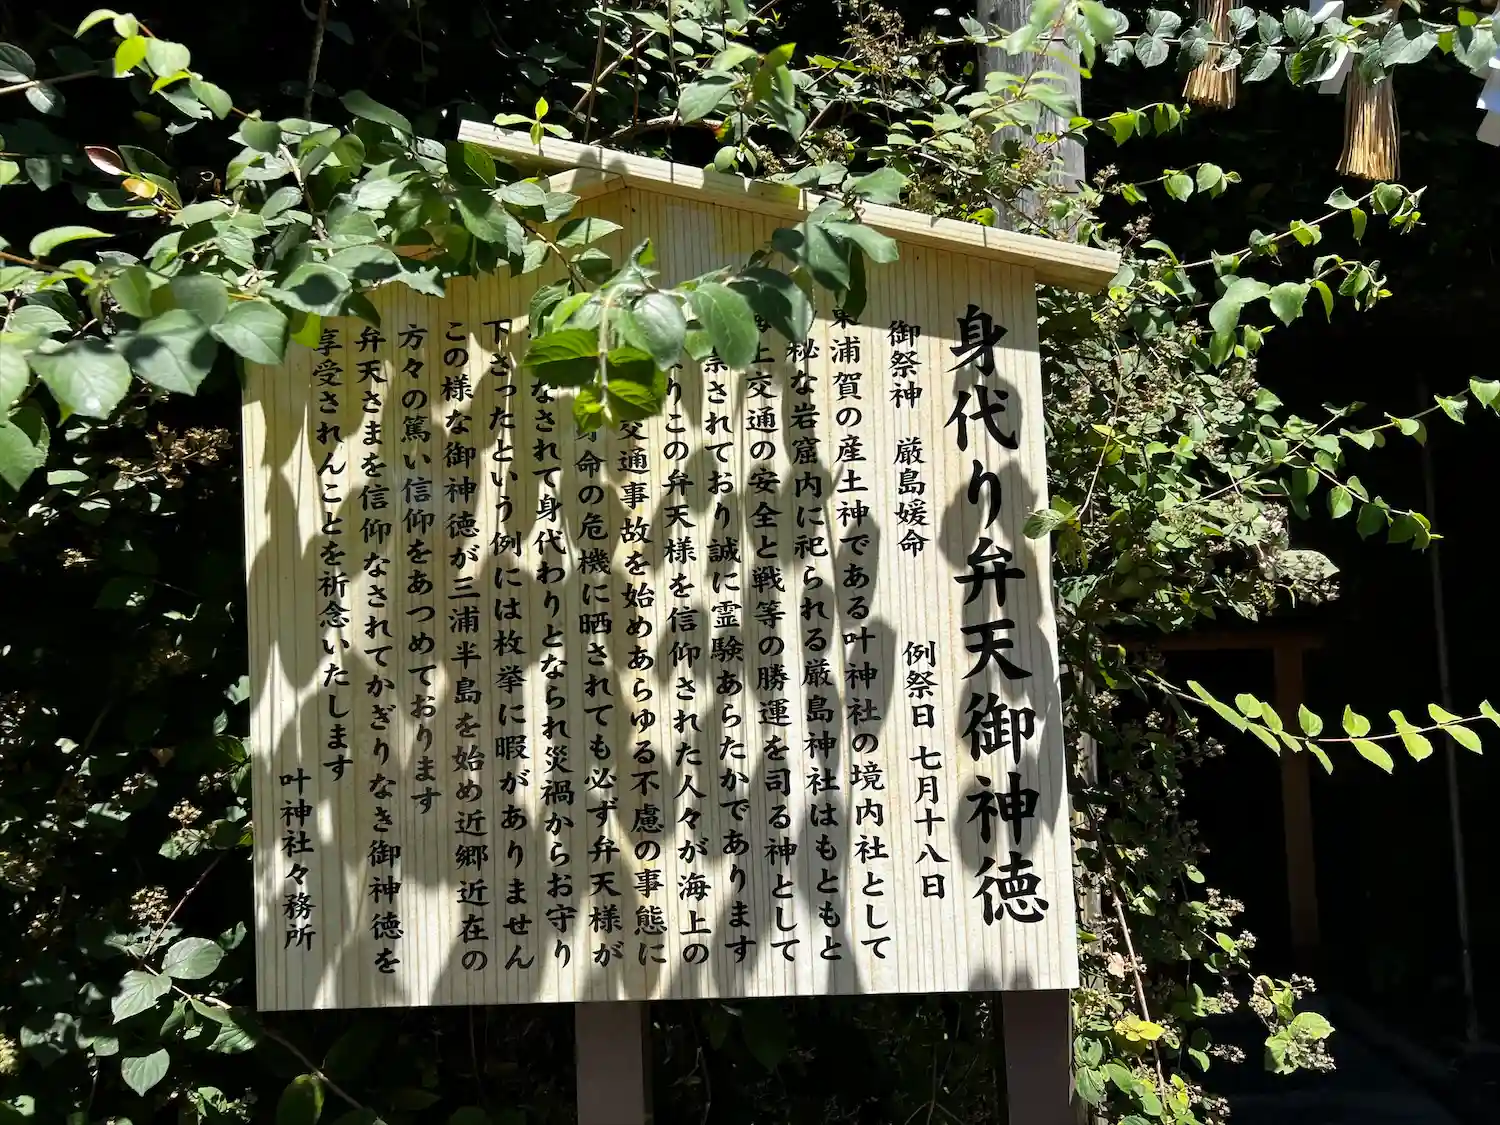 身代り弁天御神徳
御祭神 厳島媛命 例祭日 七月十八日
東浦賀の産土神である叶神社の境内社として
秘な岩窟内に祀られる厳島神社はもともと
海上交通の安全と戦等の勝運を司る神として
崇されており誠に霊験あらたかであります
りこの弁天様を信仰された人々が海上の
交通事故を始めあらゆる不慮の事態に
身命の危機に晒されても必ず弁天様が
なされて身代わりとなられ災禍からお守り
下さったという例には枚挙に暇がありません
この様な御神徳が三浦半島を始め近郷近在の
方々の篤い信仰をあつめております
弁天さまを信仰なされてかぎりなき御神徳を
享受されんことを祈念いたします
叶神社々務所